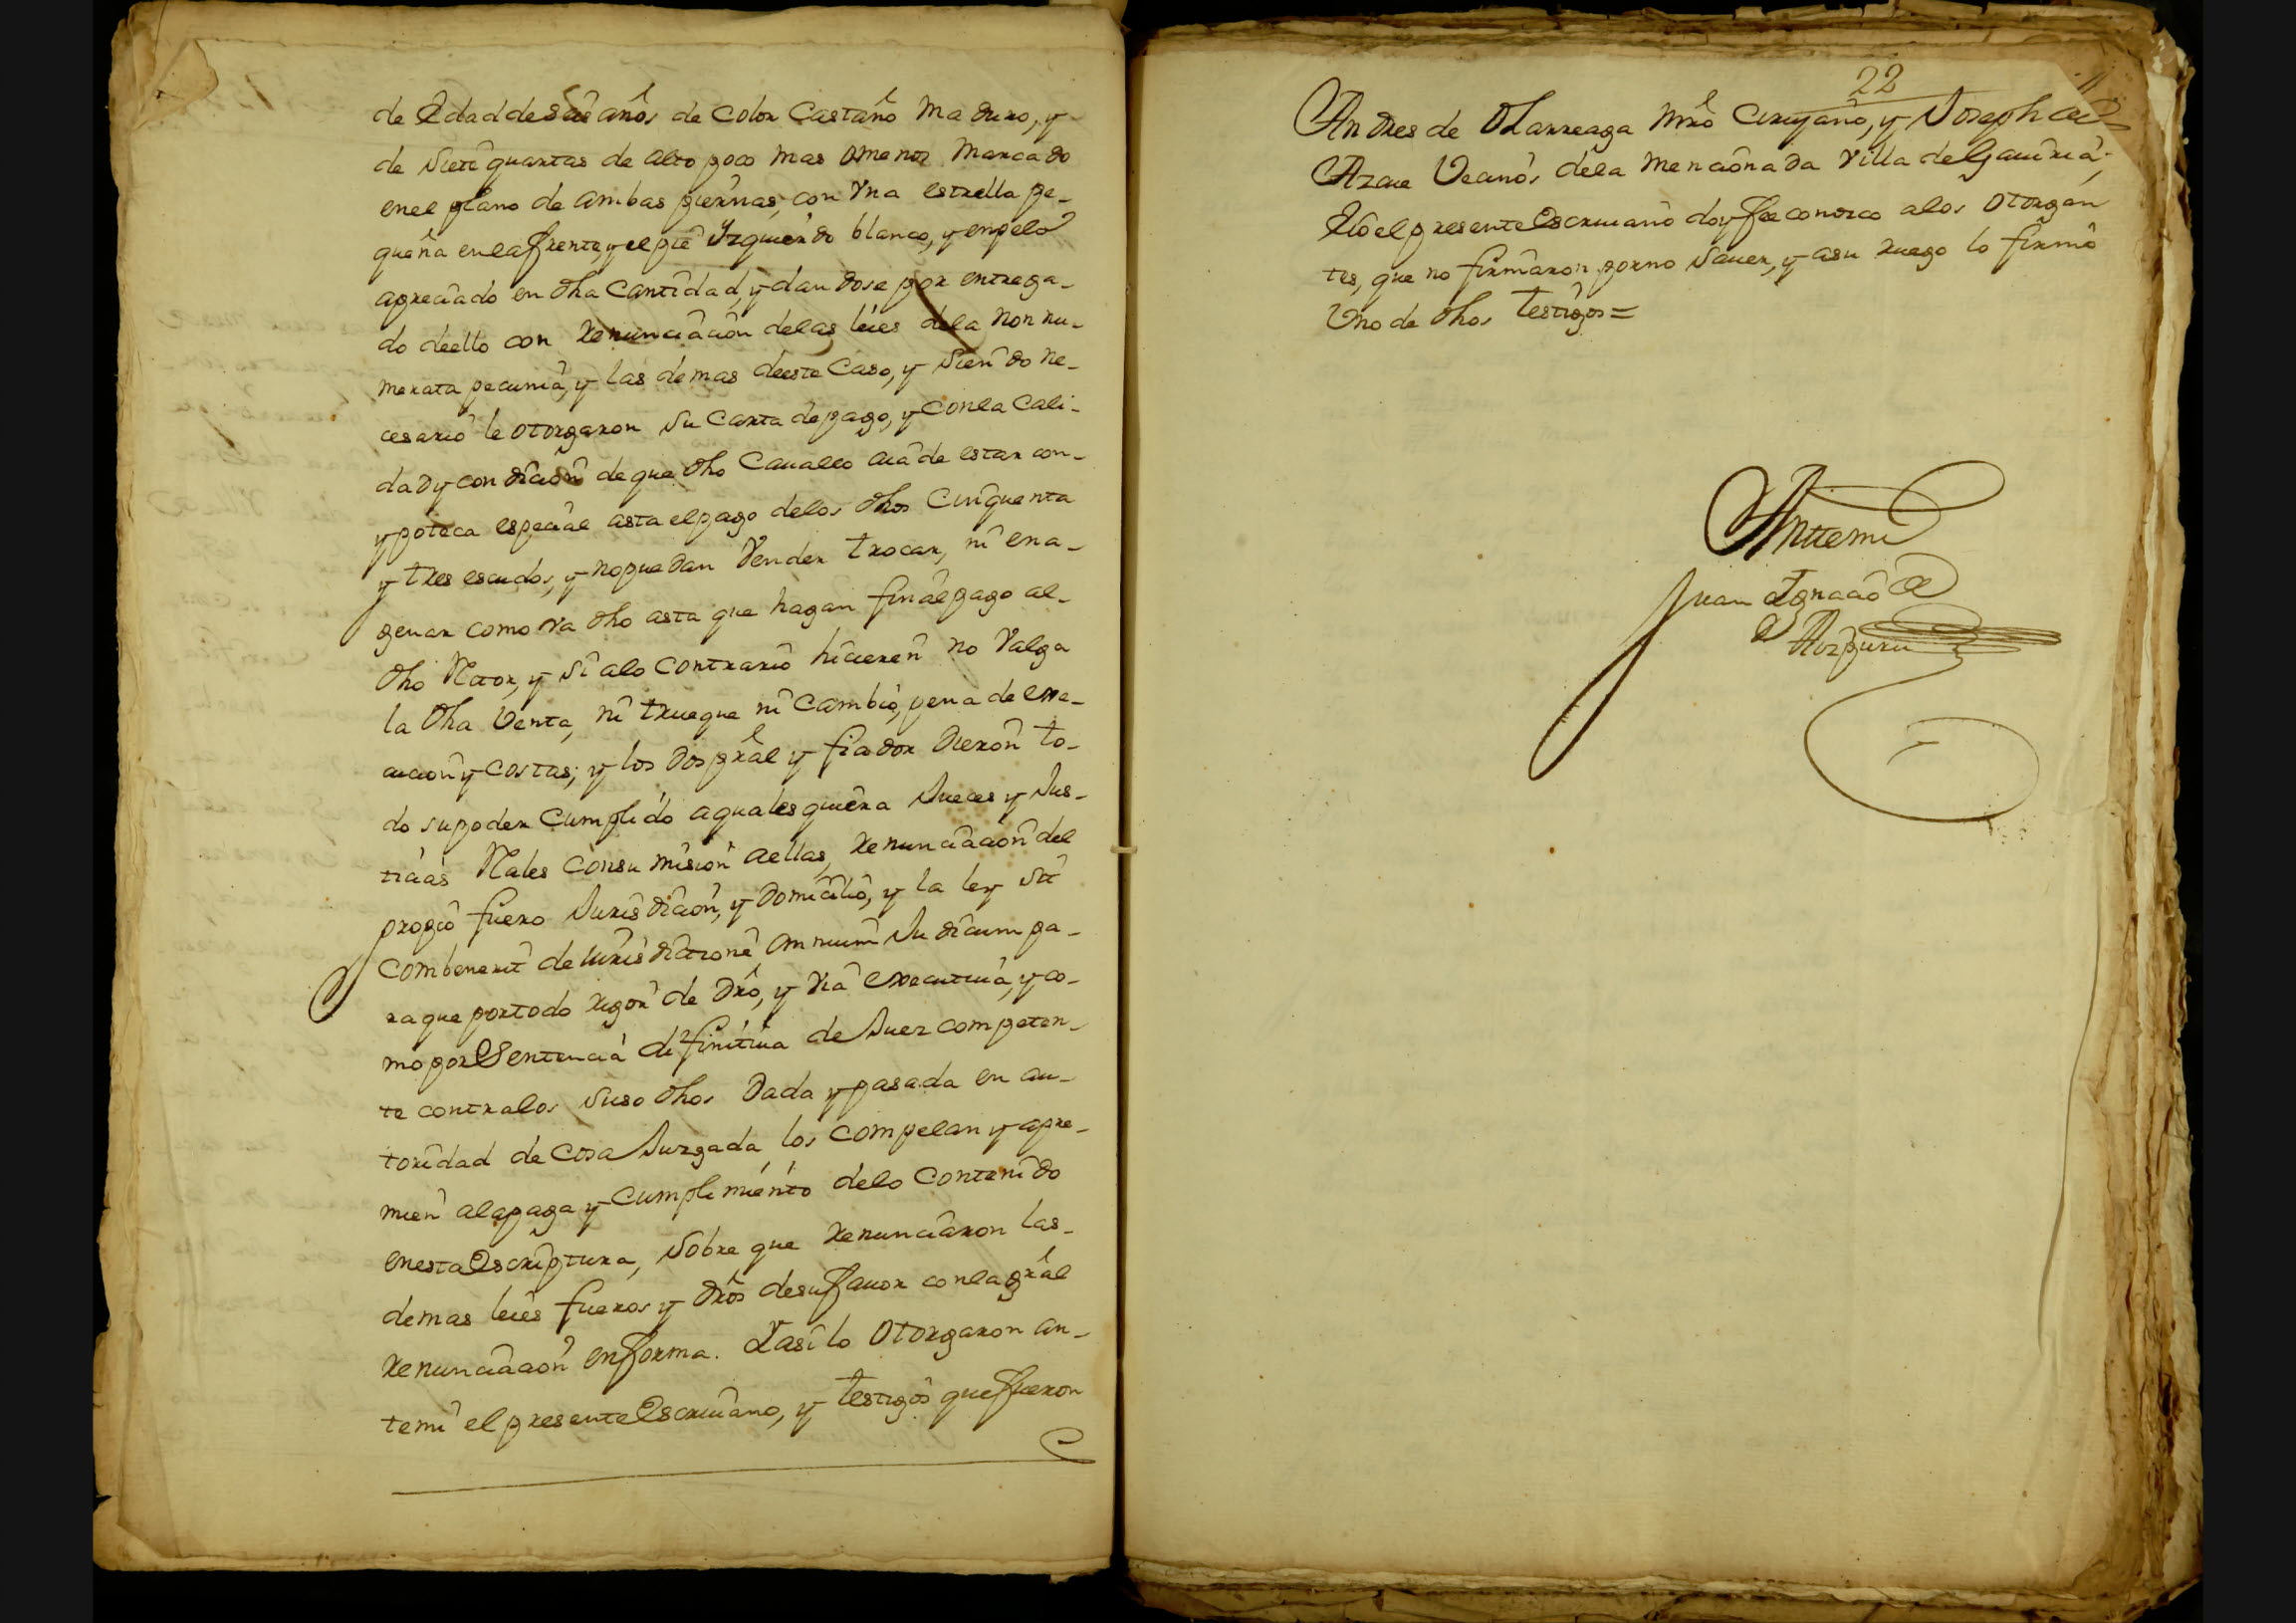 de Edad de seis años de color Castaño maduro, y
de siete quartas de alto poco mas o menos marcado
en el plano de ambas piernas, con vna estrella pe-
queña en la frente, y el pie Yzquierdo blanco, y en pelo
apreciado en dha Cantidad, y dandose por entrega-
do de ello con renunciacion de las leies de la non nu-
merata pecunia, y las demas de este Caso, y siendo ne-
cesario le otorgaron su Carta de pago, y con la Cali-
dad y condicion de que dho Cauallo aia de estar con-
ypoteca especial asta el pago de los dhos Cinquenta
y tres escudos, y no puedan Vender trocar, ni ena-
genar como va dho asta que hagan final pago al
dho Rector, y si a lo contrario hicieren no Valga
la dha Venta, ni trueque ni Cambio, pena de exe-
cucion y costas; y los dos prãl y fiador dieron to-
do su poder Cumplido a qualesquiera Jueces y Jus-
ticias Rales con sumision a ellas, renunciacion del
propio fuero Jurisdicion, y domicilio, y la ley sit
combenerit de iurisdictione omnium Judicum pa-
ra que por todo rigor de dro, y via executiua, y co-
mo por Sentencia difinitiua de Juez competen-
te contra los suso dhos dada y pasada en au-
toridad de Cosa Juzgada los compelan y apre-
mien a la paga y Cumplimiento de lo Contenido
en esta Escriptura, sobre que renunciaron las
demas leies fueros y dros de su fauor con la gräl
renunciacion en forma. Y asi lo otorgaron an-
te mi el presente Escriuano, y testigos que fueron
22
Andres de Olarreaga mro Cirujano, y Joseph de
Azcue Vecinos de la mencionada Villa de Gauiria;
E io el presente Escriuano doy fee conozco a los otorgan
tes, que no firmaron por no sauer, y a su ruego lo firmo
Vno de dhos testigos =
Antte mi
Juan Ignacio de
Aizpuru